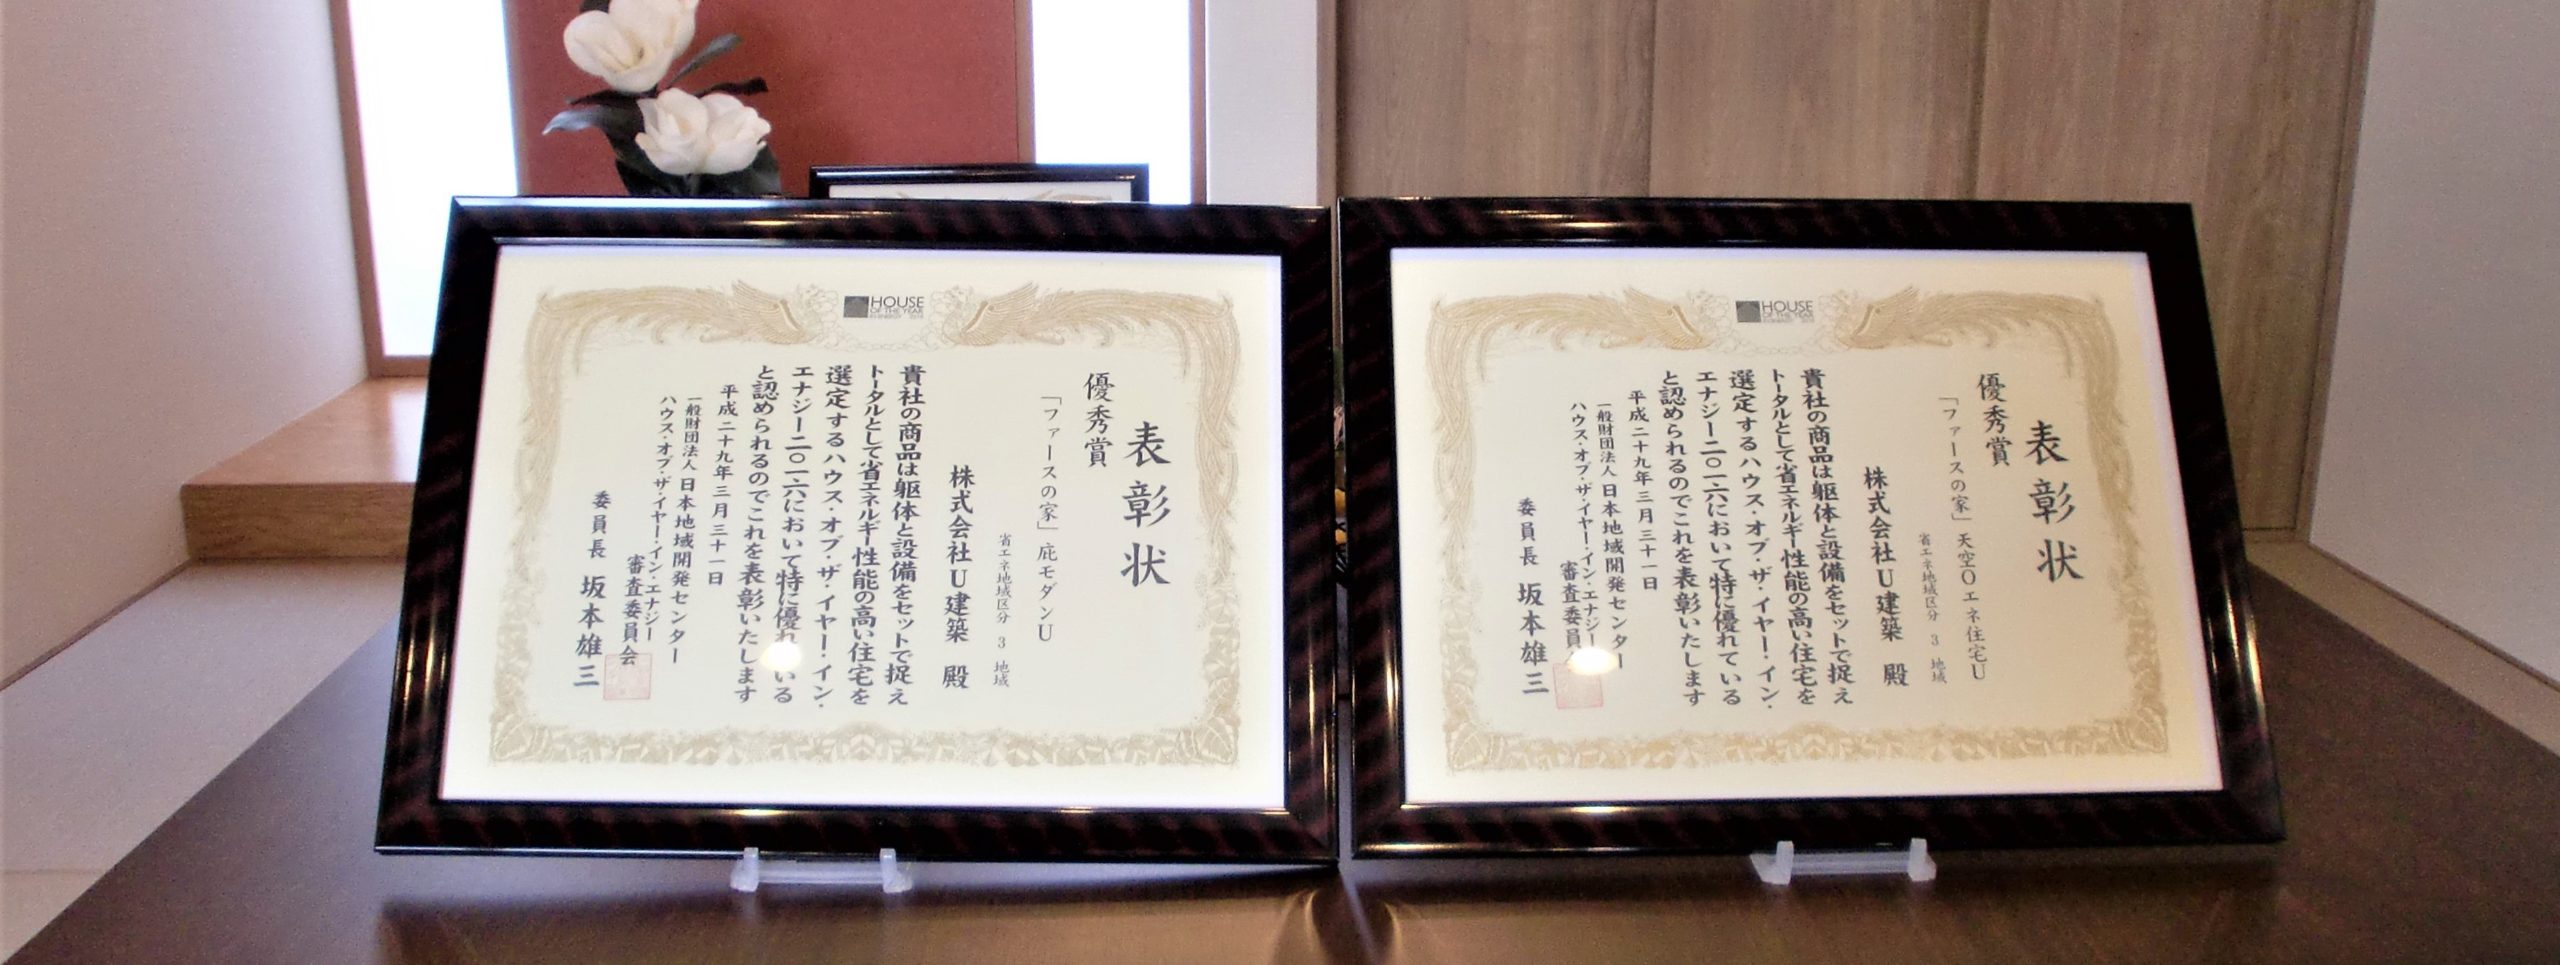 HOUSE
OF THE YEAR
表彰状
優秀賞
「ファースの家」庇モダンU
省エネ地域区分 3 地域
株式会社U建築 殿
貴社の商品は躯体と設備をセットで捉え
トータルとして省エネルギー性能の高い住宅を
選定するハウス・オブ・ザ・イヤー・イン・
エナジー二〇一六において特に優れている
と認められるのでこれを表彰いたします
平成二十九年三月三十一日
一般財団法人日本地域開発センター
ハウス・オブ・ザ・イヤー・イン・エナジー
審査委員会
委員長 坂本雄三
HOUSE
OF THE YEAR
表彰状
優秀賞
「ファースの家」天空0エネ住宅U
省エネ地域区分 3 地域
株式会社U建築 殿
貴社の商品は躯体と設備をセットで捉え
トータルとして省エネルギー性能の高い住宅を
選定するハウス・オブ・ザ・イヤー・イン・
エナジー二〇一六において特に優れている
と認められるのでこれを表彰いたします
平成二十九年三月三十一日
一般財団法人日本地域開発センター
ハウス・オブ・ザ・イヤー・イン・エナジー
審査委員会
委員長 坂本雄三